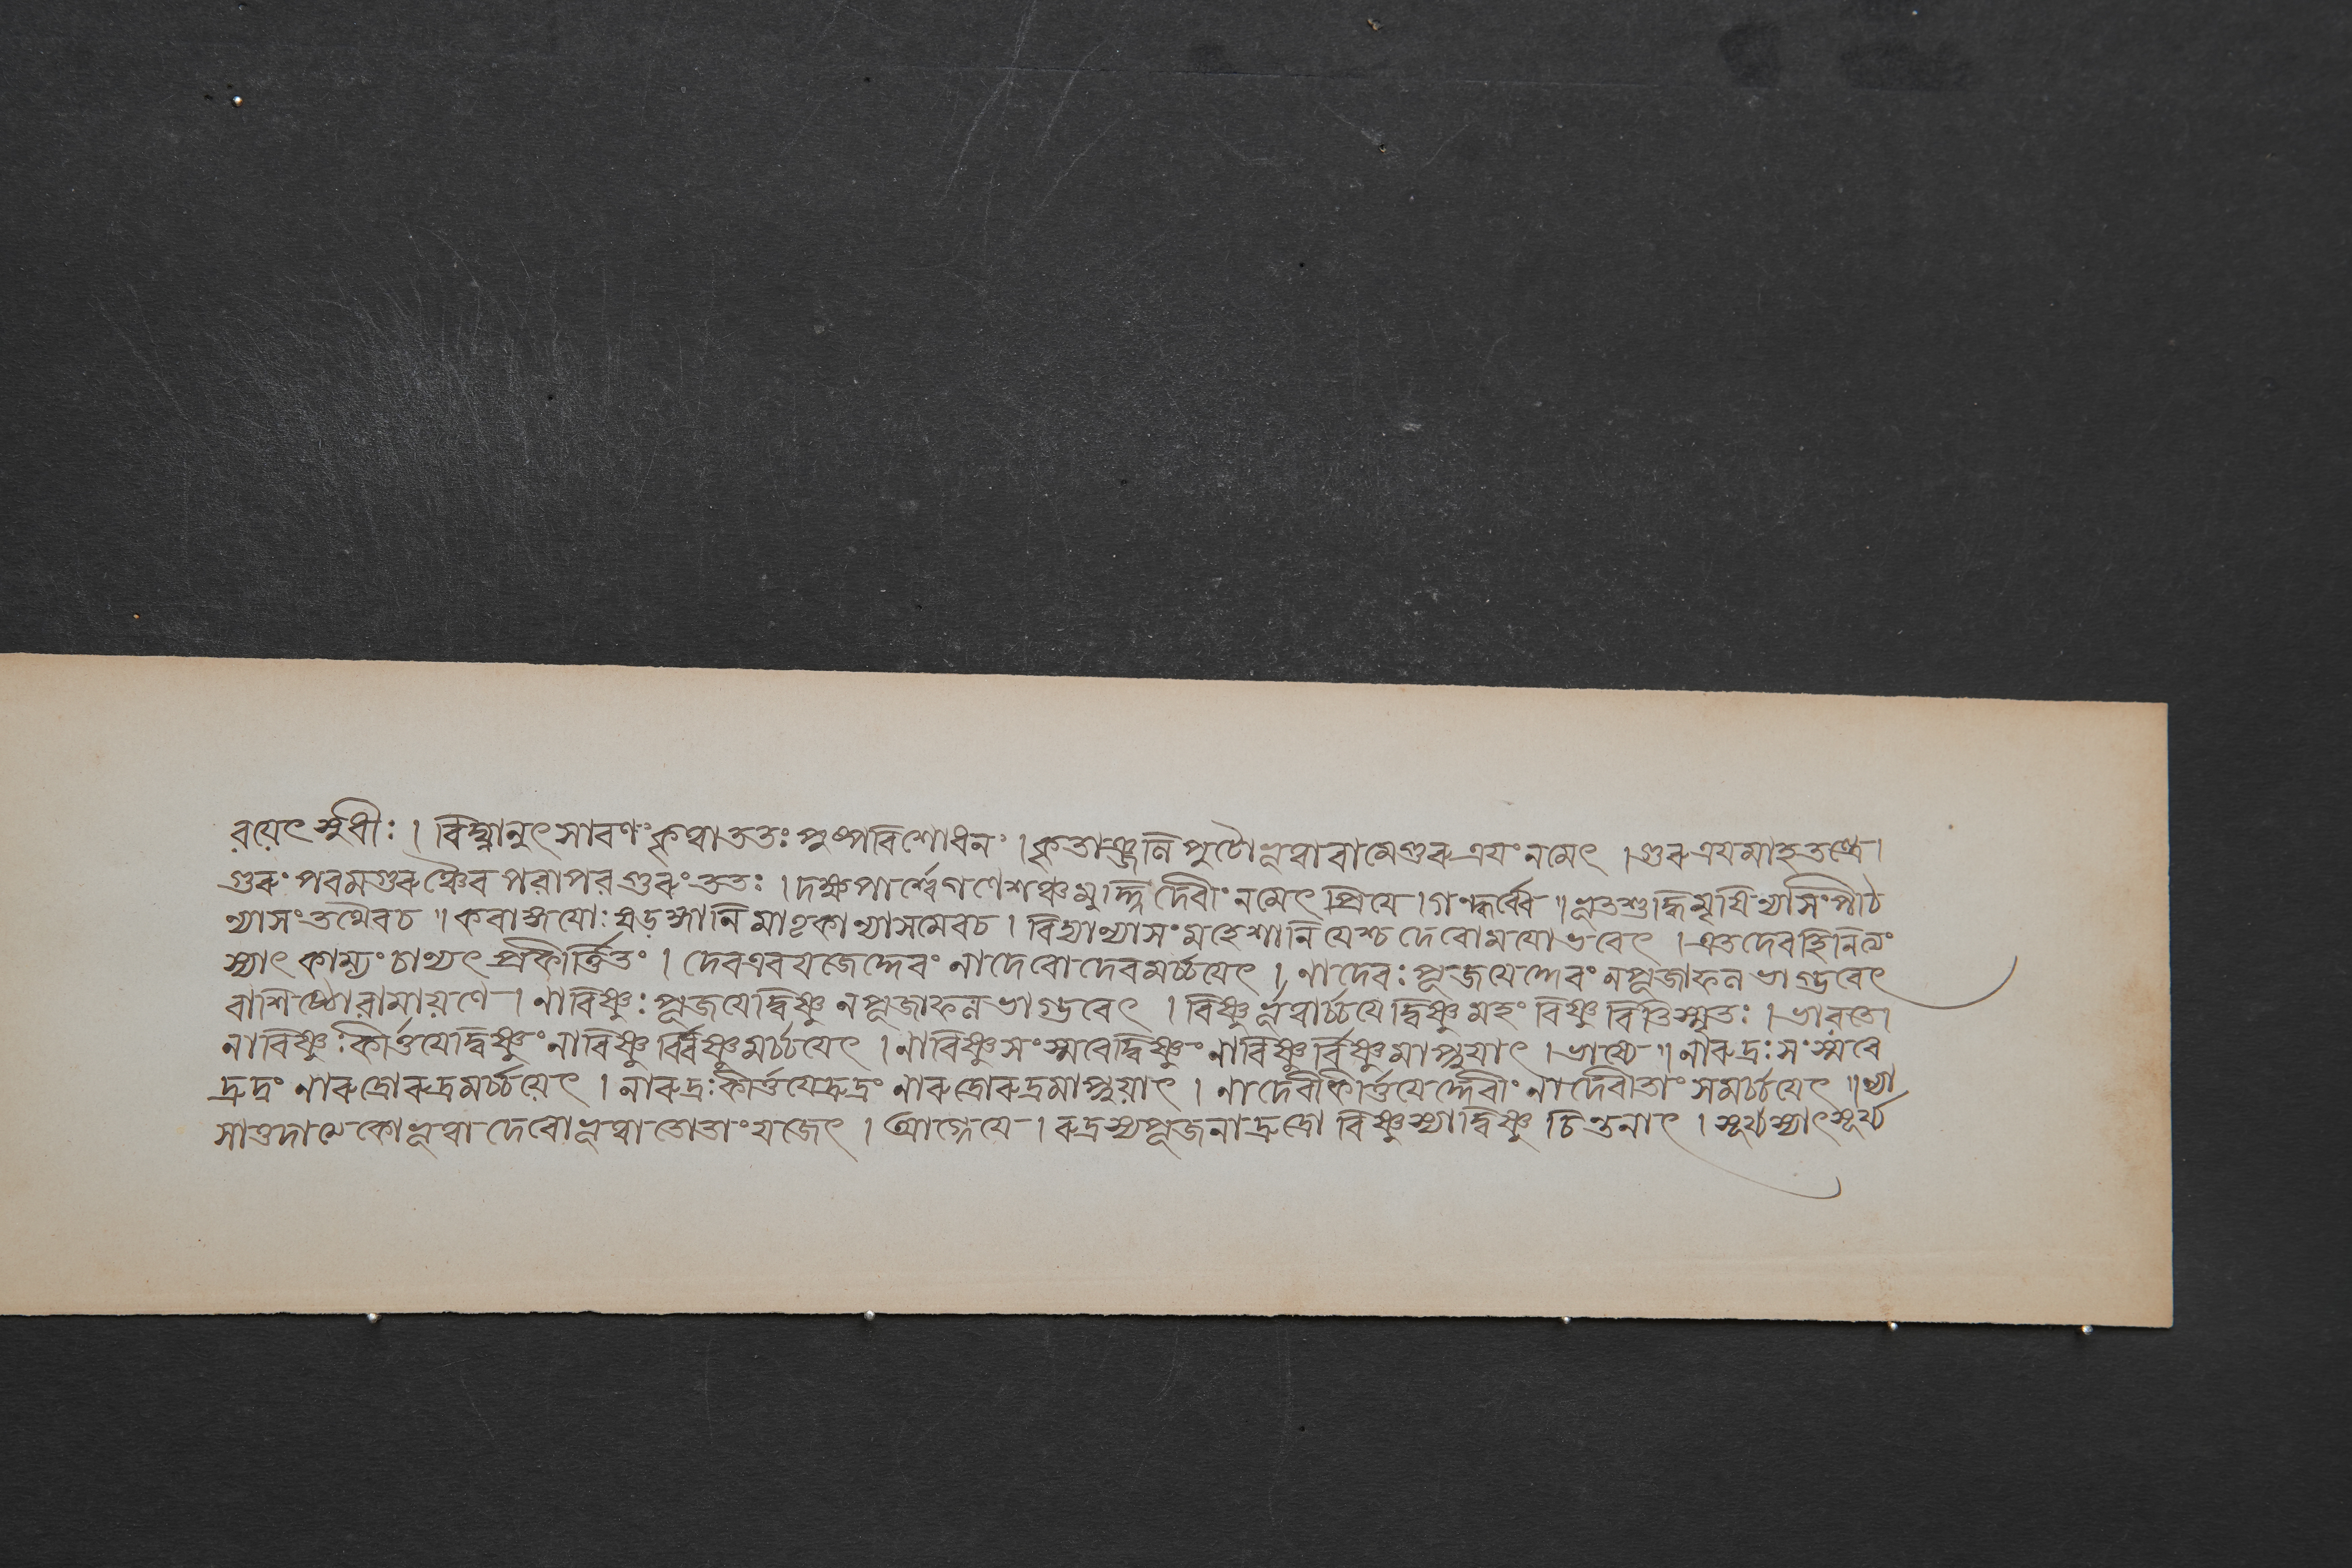 রয়েৎ সুধীঃ । বিঘ্নানুৎসারণং কৃত্বা ততঃ পুষ্পবিশোধনং । কৃতাঞ্জলিপুটো ভূত্বা বামে গুরুত্রয়ং নমেৎ । গুরুত্রয়মাহ তন্ত্রে ।
গুরুং পরমগুরুঞ্চৈব পরাপরগুরুং ততঃ । দক্ষপার্শ্বে গণেশঞ্চ মূর্দ্ধ্নি দেবীং নমেৎ প্রিয়ে । গন্ধর্ব্বে ॥ ভূতশুদ্ধিমৃষিন্যাসং পীঠ
ন্যাসং তথৈব চ ॥ করাঙ্গয়োঃ ষড়ঙ্গানি মাতৃকান্যাসমেব চ । বিদ্যান্যাসং মহেশানি যেশ্চ দেবোময়ো ভবেৎ । এতদেবহি নিত্যং
স্যাৎ কাম্যং চান্যৎ প্রকীর্ত্তিতং । দেব এব যজেদ্দেবং নাদেবো দেবমর্চ্চয়েৎ । নাদেবঃ পূজয়েদ্দেবং ন পূজাফলভাগ্ভবেৎ
বাশিষ্ঠো রামায়ণে । নাবিষ্ণুঃ পূজয়েদ্বিষ্ণু ন পূজাফলভাগ্ভবেৎ । বিষ্ণুর্ভূত্বার্চ্চয়েদ্বিষ্ণু মহং বিষ্ণু রিতিস্মৃতঃ । ভারতে ।
নাবিষ্ণুঃ কীর্ত্তয়েদ্বিষ্ণুং নাবিষ্ণুর্বিষ্ণুমর্চ্চয়েৎ । নাবিষ্ণু সংস্মরেদ্বিষ্ণুং নাবিষ্ণুর্বিষ্ণুমাপ্নুয়াৎ । ভবিষ্যে ॥ নারুদ্রঃ সংস্মরে
দ্রুদ্রং নারুদ্রো রুদ্রমর্চ্চয়েৎ । নারুদ্রঃ কীর্ত্তয়েদ্রুদ্রং নারুদ্রো রুদ্রমাপ্নুয়াৎ । নাদেবী কীর্ত্তয়েদ্দেবীং নাদেবী তাং সমর্চ্চয়েৎ ॥ ন্যা
সাত্তদাত্মকো ভূত্বা দেবো ভূত্বা তো তাং যজেৎ । আগ্নেয়ে । রুদ্রস্য পূজনাদ্রুদ্রো বিষ্ণু স্যাদ্বিষ্ণু চিন্তনাৎ । সূর্য্য স্যাৎ সূর্য্য